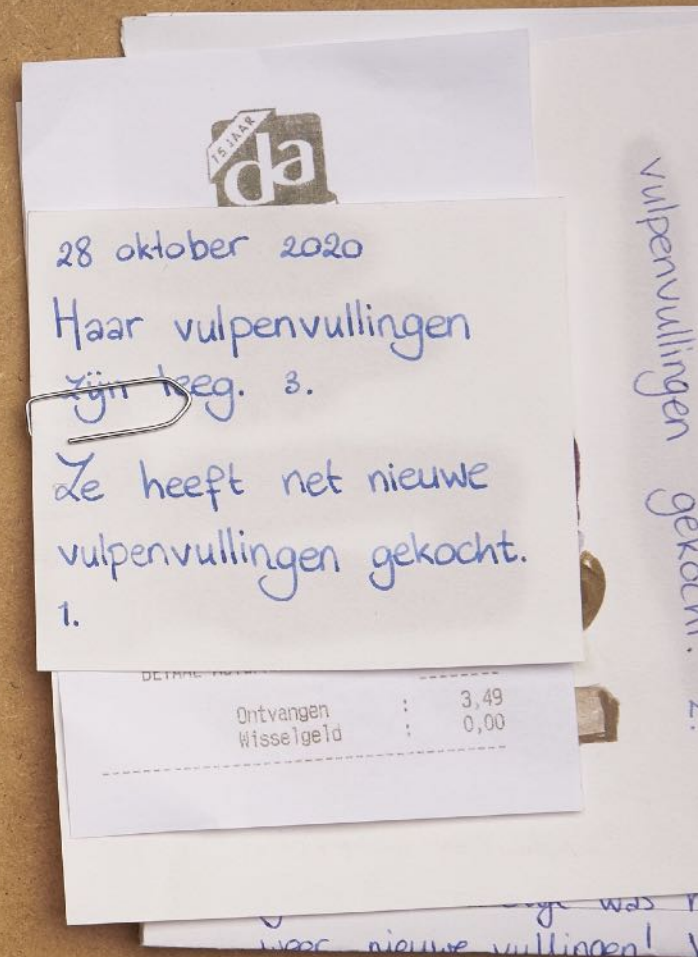 15 JAAR
da
28 oktober 2020
Haar vulpenvullingen
zijn leeg. 3.
Ze heeft net nieuwe
vulpenvullingen gekocht.
1.
Ontvangen : 3,49
Wisselgeld : 0,00
vulpenvullingen gekocht. 2.
was
weer nieuwe vullingen!